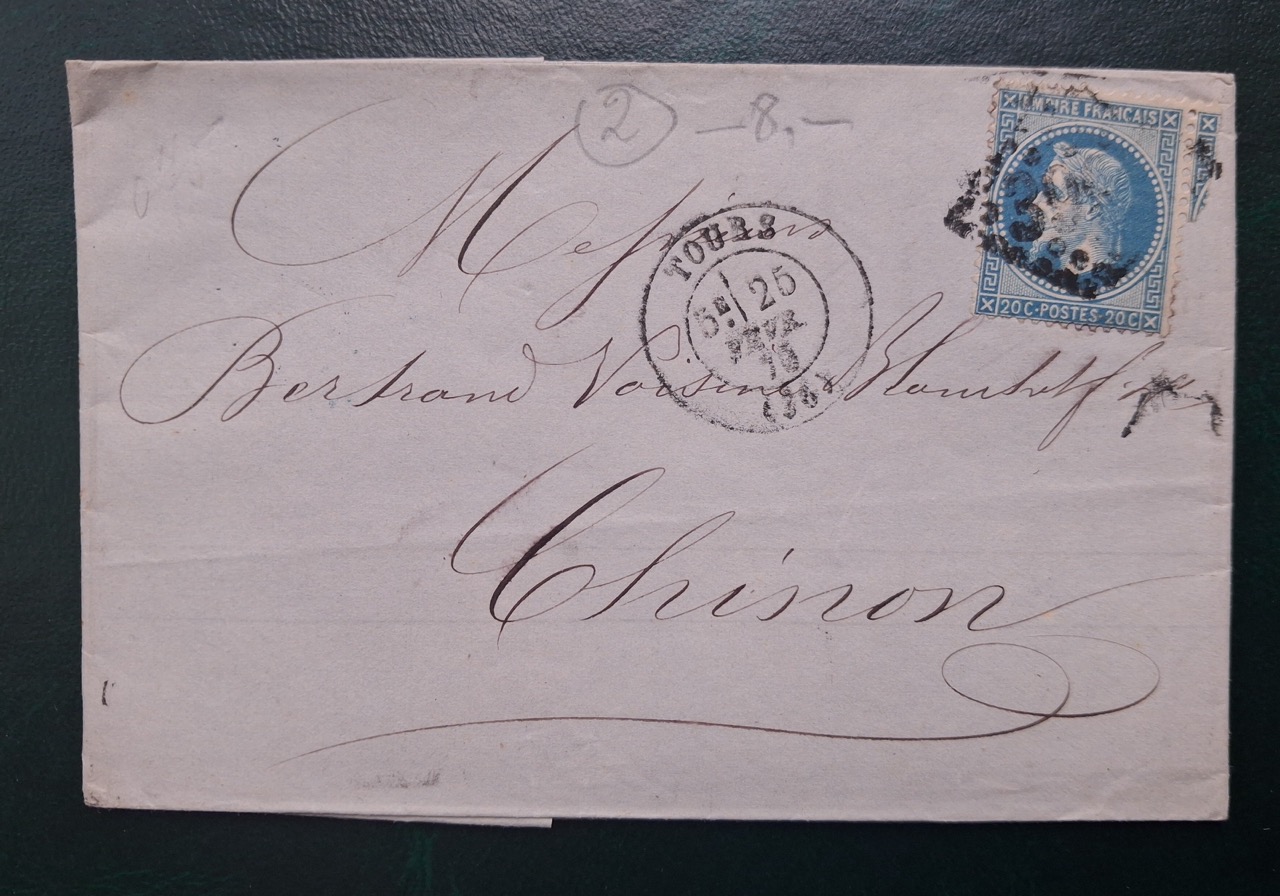 2 — 8,—
EMPIRE FRANCAIS
20C·POSTES·20C
Messieurs
TOURS
5E/25
FEVR
70
(36)
Bertrand Voisine
Chinon